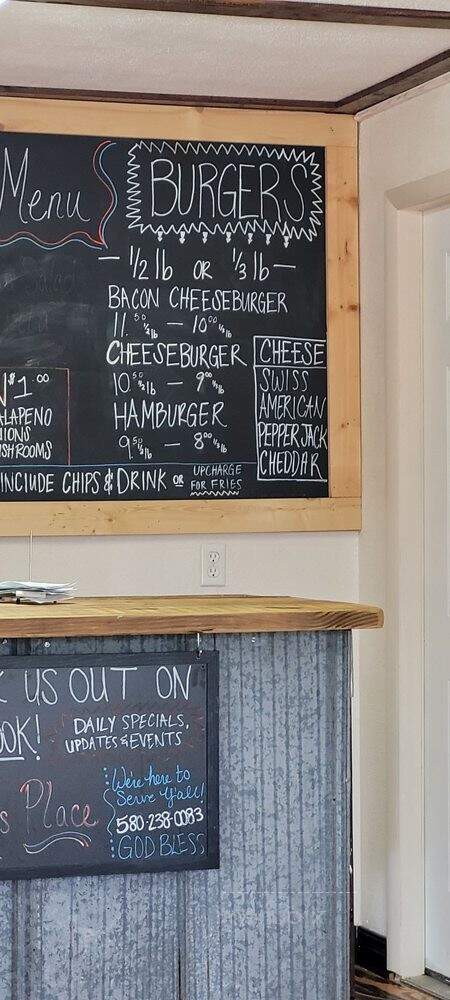 Menu
BURGERS
1/2 lb OR 1/3 lb
BACON CHEESEBURGER
11.50 1/2 lb — 10.00 1/3 lb
CHEESEBURGER
10.50 1/2 lb — 9.00 1/3 lb
HAMBURGER
9.50 1/2 lb — 8.00 1/3 lb
CHEESE
SWISS
AMERICAN
PEPPER JACK
CHEDDAR
$1.00
ALAPENO
IONS
SHROOMS
INCLUDE CHIPS & DRINK OR
UPCHARGE
FOR FRIES
K US OUT ON
OOK!
DAILY SPECIALS,
UPDATES & EVENTS
s Place
We're here to
Serve Y'all!
580-238-0083
GOD BLESS